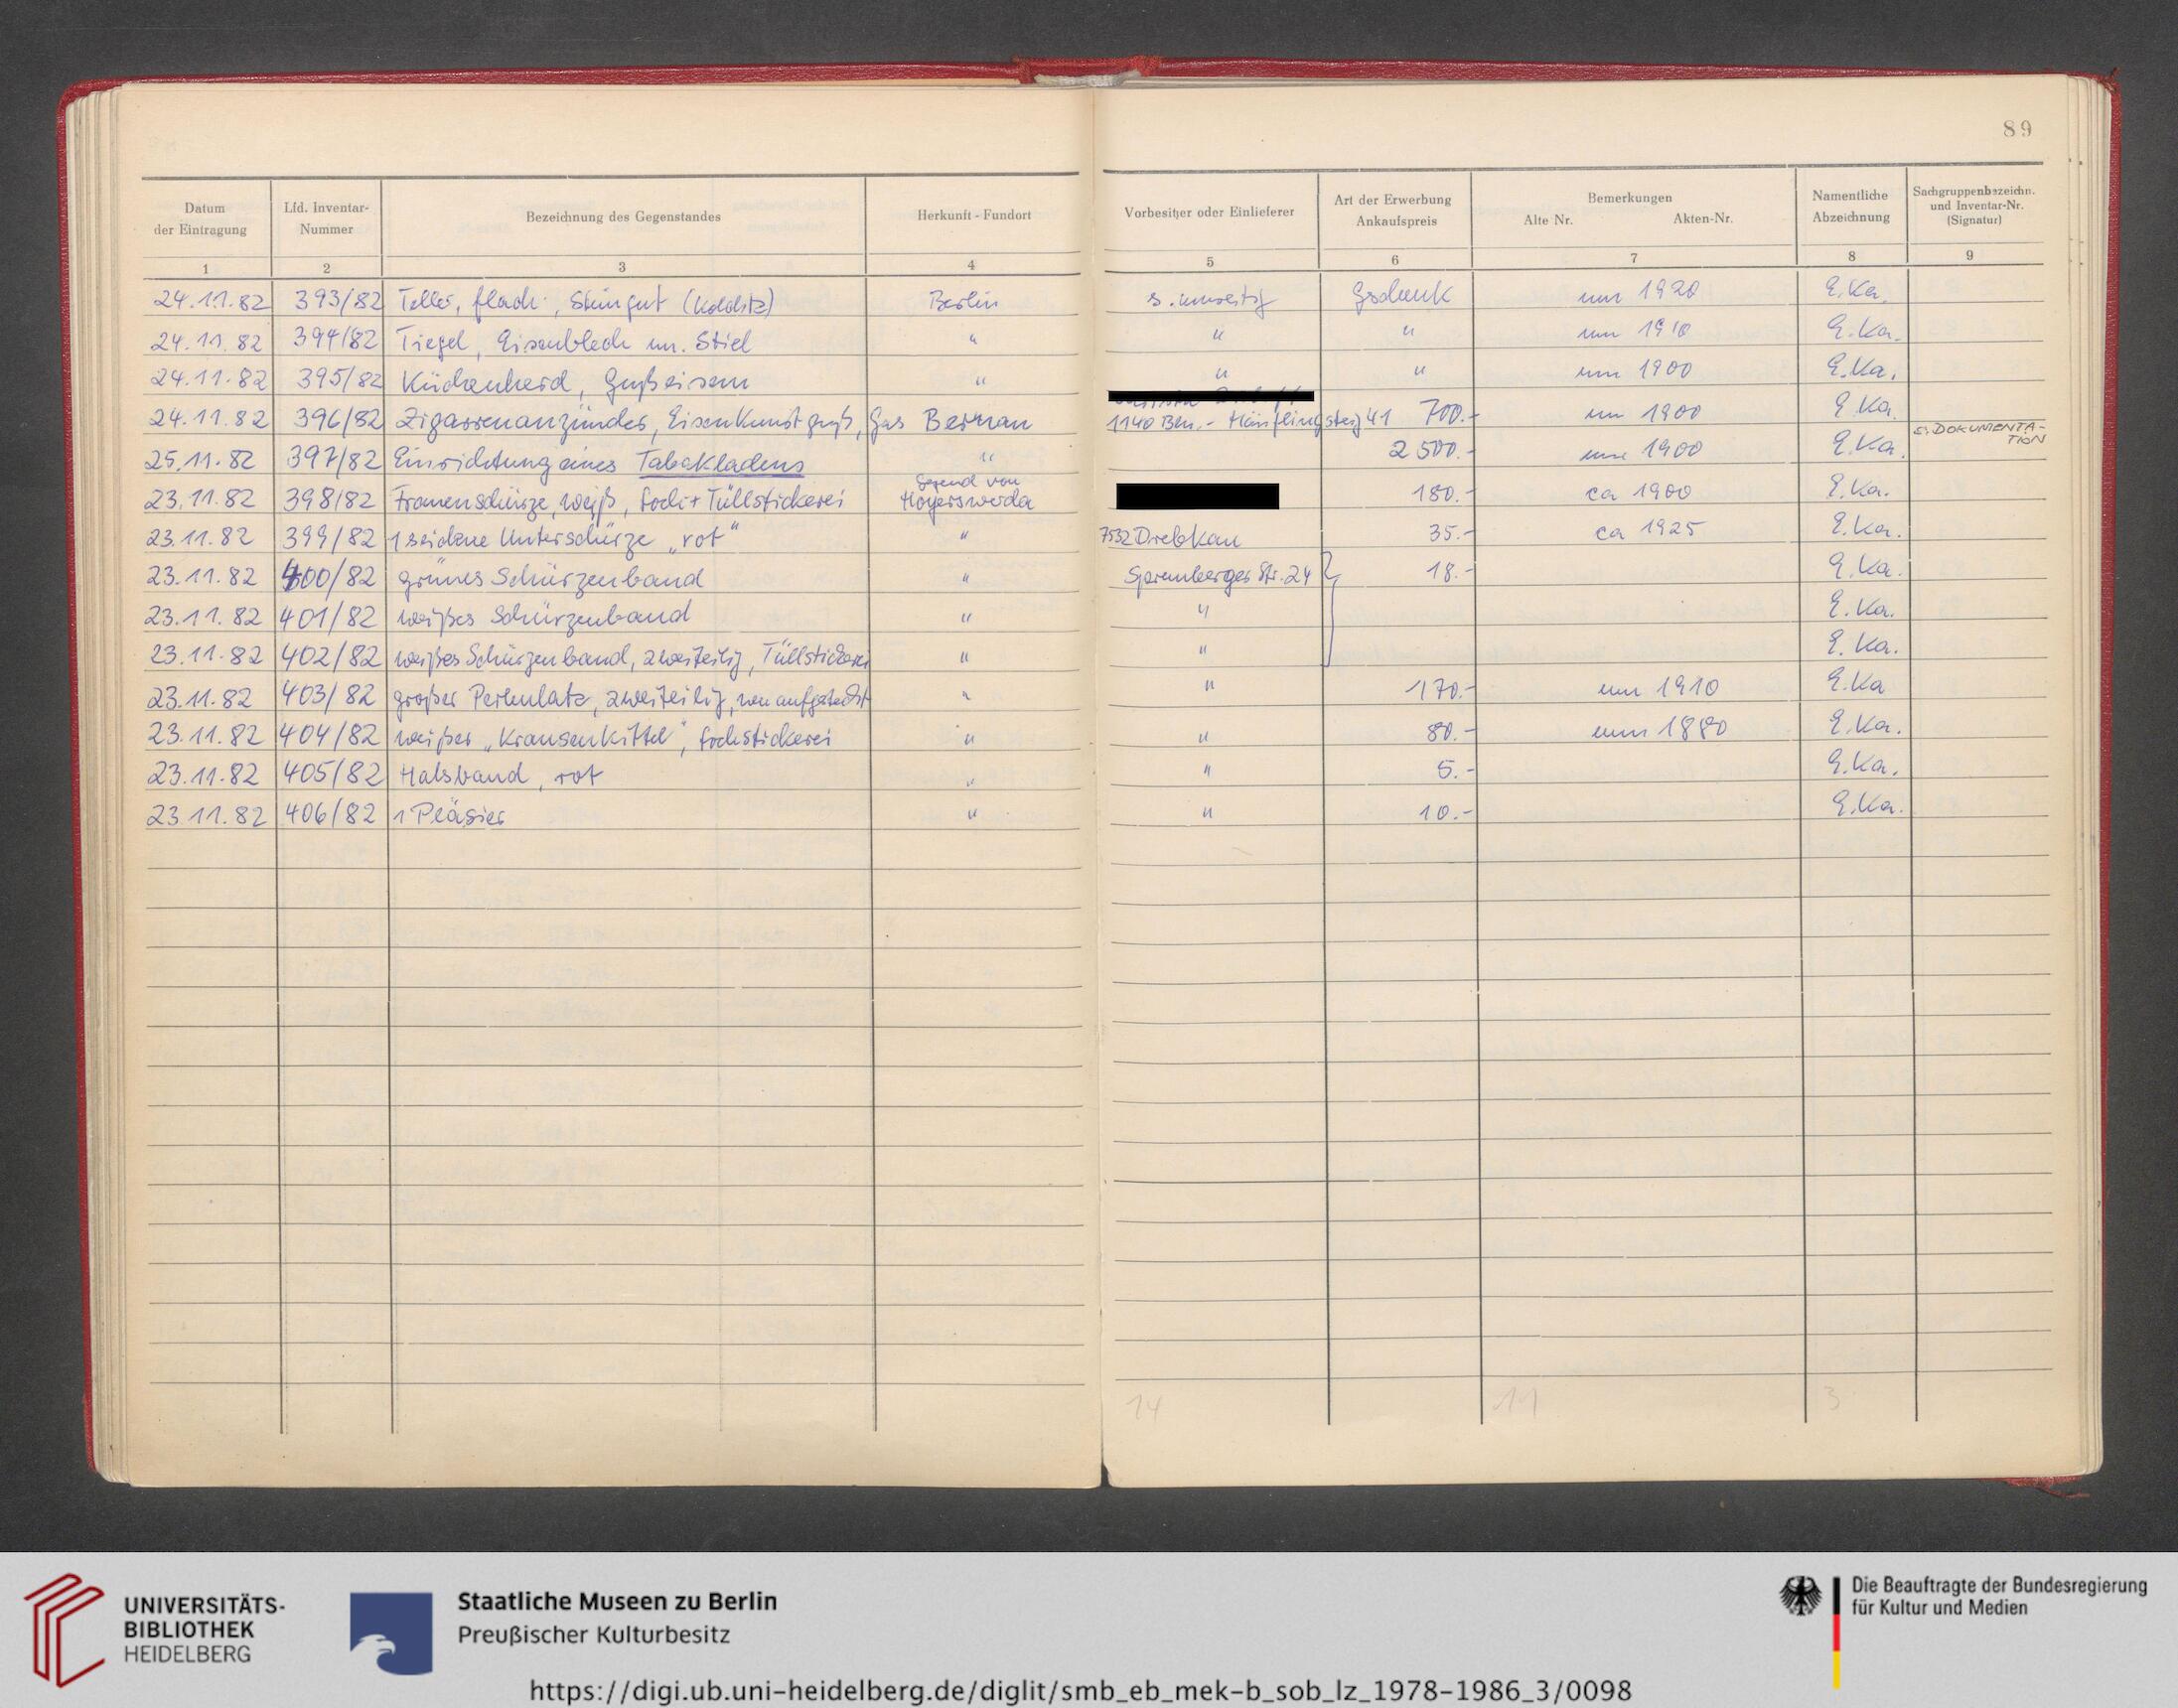 89
Datum der Eintragung | Lfd. Inventar-Nummer | Bezeichnung des Gegenstandes | Herkunft - Fundort | Vorbesitzer oder Einlieferer | Art der Erwerbung Ankaufspreis | Bemerkungen Alte Nr. Akten-Nr. | Namentliche Abzeichnung | Sachgruppenbezeichn. und Inventar-Nr. (Signatur)
1 | 2 | 3 | 4 | 5 | 6 | 7 | 8 | 9
24.11.82 | 393/82 | Teller, flach, Steingut (Kolditz) | Berlin | s. | Gschenk | um 1920 | E.Ka.
24.11.82 | 394/82 | Tiegel, Eisenblech m. Stiel | " | " | " | um 1910 | E.Ka.
24.11.82 | 395/82 | Küchenherd, Gußeisen | " | " | " | um 1900 | E.Ka.
24.11.82 | 396/82 | Zigarrenanzünder, Eisenkunstguß, Gas | Bernau | 1140 Bln.- Hänflingsteig 41 | 700.- | um 1900 | E.Ka.
25.11.82 | 397/82 | Einrichtung eines Tabakladens | " | 2 500.- | um 1900 | E.Ka. | S. DOKUMENTA-TION
23.11.82 | 398/82 | Frauenschürze, weiß, Loch+Tüllstickerei | Gegend von Hoyerswerda | 180.- | ca 1900 | E.Ka.
23.11.82 | 399/82 | 1 seidene Unterschürze „rot“ | " | 7532 Drebkau | 35.- | ca 1925 | E.Ka.
23.11.82 | 400/82 | grünes Schürzenband | " | Spremberger Str. 24 | 18.- | E.Ka.
23.11.82 | 401/82 | weißes Schürzenband | " | " | E.Ka.
23.11.82 | 402/82 | weißes Schürzenband, zweiteilig, Tüllstickerei | " | " | E.Ka.
23.11.82 | 403/82 | großer Perlenlatz, zweiteilig, neu | " | " | 170.- | um 1910 | E.Ka
23.11.82 | 404/82 | weißer „Krausenkittel“, Lochstickerei | " | " | 80.- | um 1880 | E.Ka.
23.11.82 | 405/82 | Halsband, rot | " | " | 5.- | E.Ka.
23.11.82 | 406/82 | 1 Pläsier | " | " | 10.- | E.Ka.
14 | 11 | 3
UNIVERSITÄTS-
BIBLIOTHEK
HEIDELBERG
Staatliche Museen zu Berlin
Preußischer Kulturbesitz
Die Beauftragte der Bundesregierung
für Kultur und Medien
https://digi.ub.uni-heidelberg.de/diglit/smb_eb_mek-b_sob_lz_1978-1986_3/0098